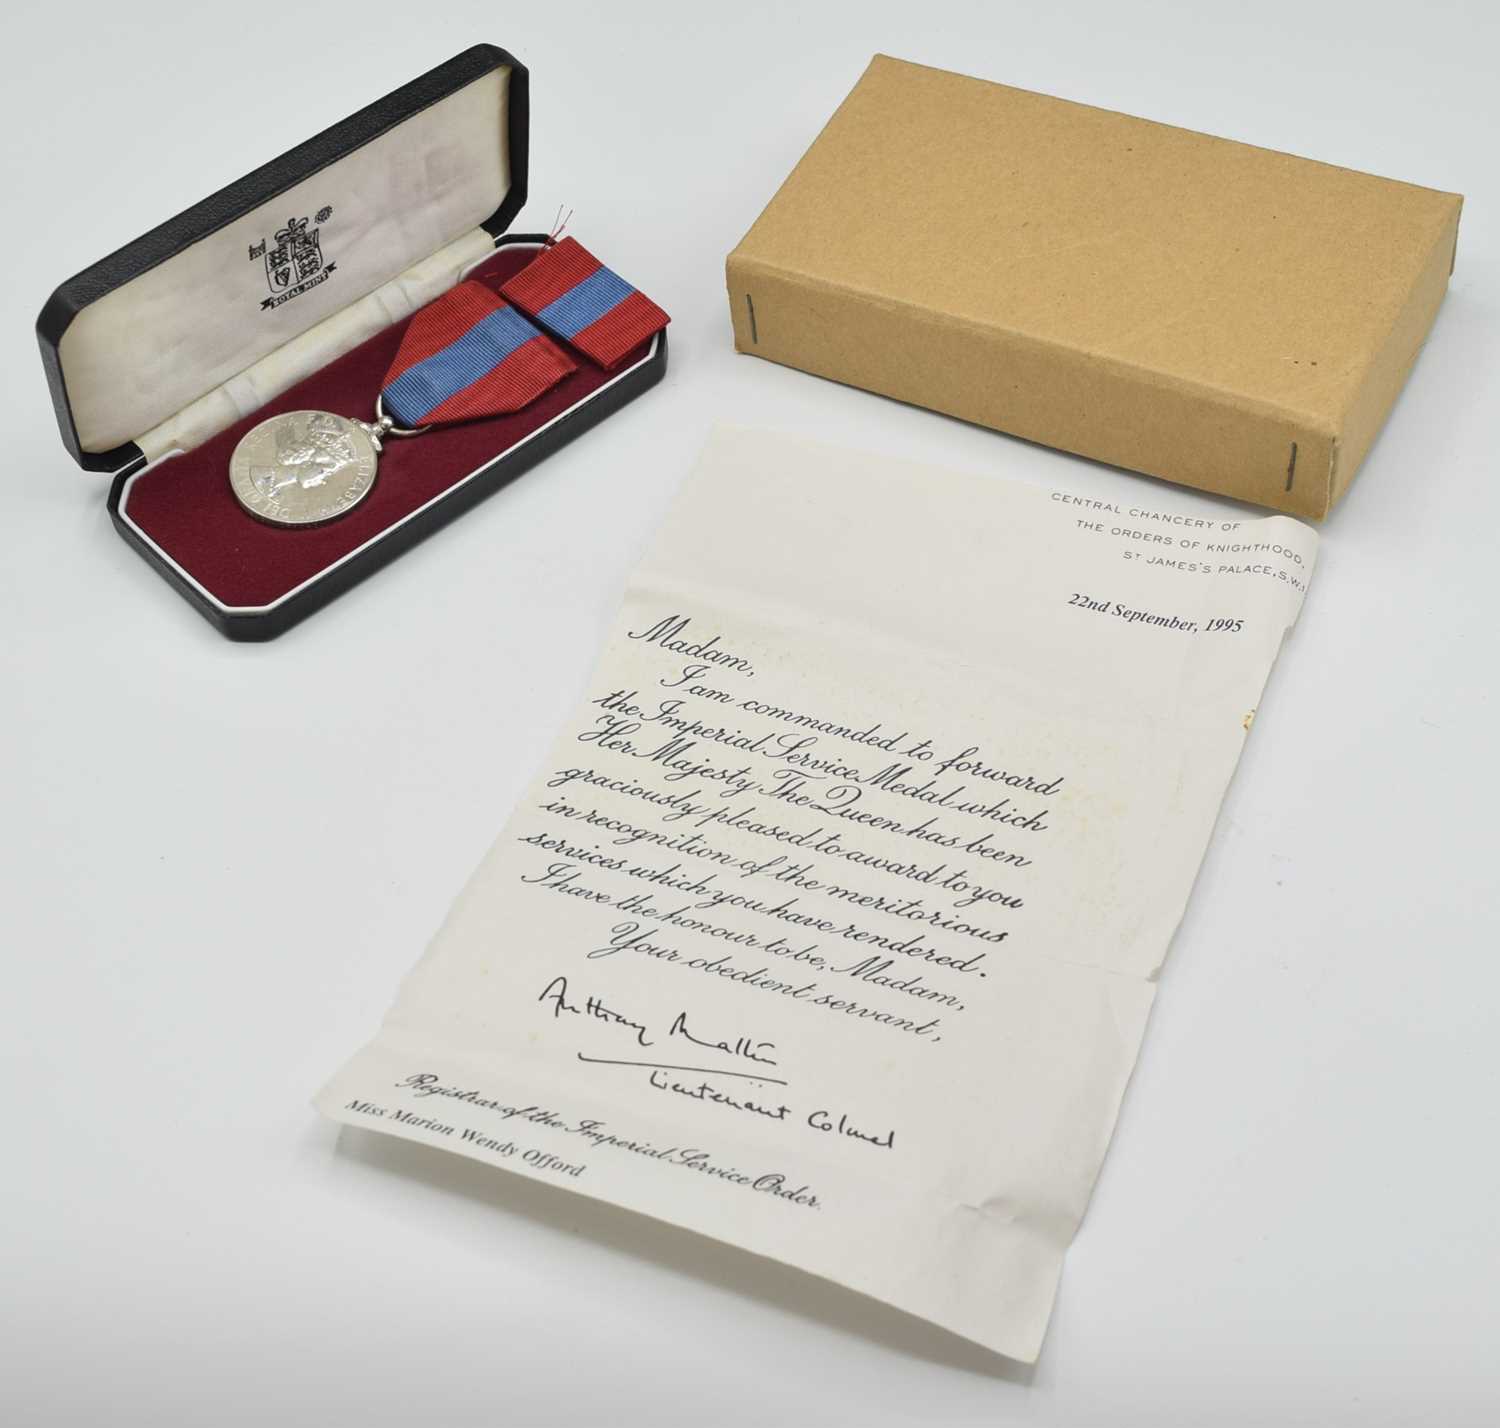 ROYAL MINT
ELIZABE
DEI GRATIA
CENTRAL CHANCERY OF
THE ORDERS OF KNIGHTHOOD,
ST JAMES'S PALACE, S.W.1
22nd September, 1995
Madam,
I am commanded to forward
the Imperial Service Medal which
Her Majesty The Queen has been
graciously pleased to award to you
in recognition of the meritorious
services which you have rendered.
I have the honour to be, Madam,
Your obedient servant,
Anthony Mather
Lieutenant Colonel
Registrar of the Imperial Service Order.
Miss Marion Wendy Offord